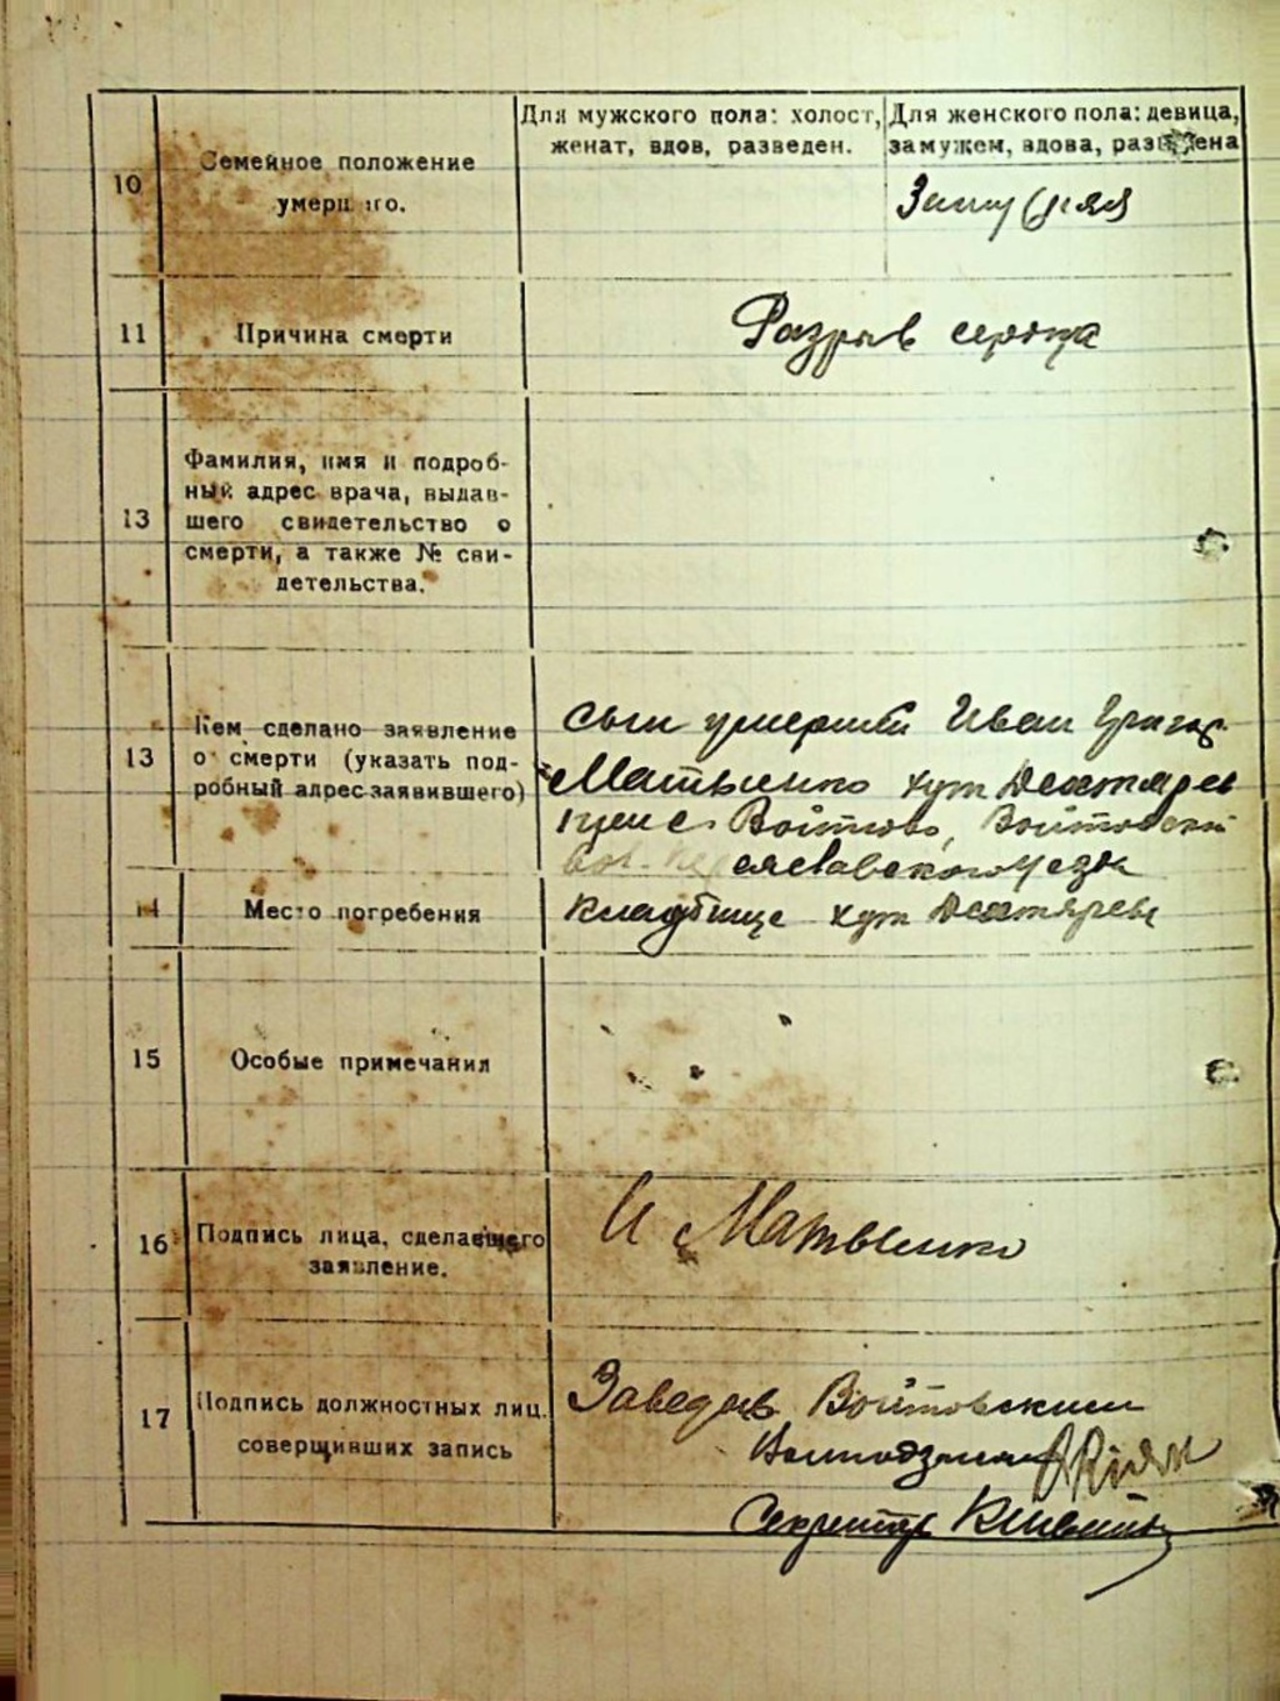 10
Семейное положение
умерш го.
Для мужского пола: холост,
женат, вдов, разведен.
Для женского пола: девица,
замужем, вдова, разведена
Замужняя
11
Причина смерти
Разрыв сердца
13
Фамилия, имя и подроб-
ный адрес врача, выдав-
шего свидетельство о
смерти, а также № сви-
детельства.
13
Кем сделано заявление
о смерти (указать под-
робный адрес заявившего)
сын умершей Иван Григор.
Матвиенко хут Дехтярев
с. Войтово, Войтовской
вол. Переяславского уезда
14
Место погребения
Кладбище хут Дехтярев
15
Особые примечания
16
Подпись лица, сделавшего
заявление.
И Матвиенко
17
Подпись должностных лиц.
соверщивших запись
Заведыв Войтовским
Секретарь